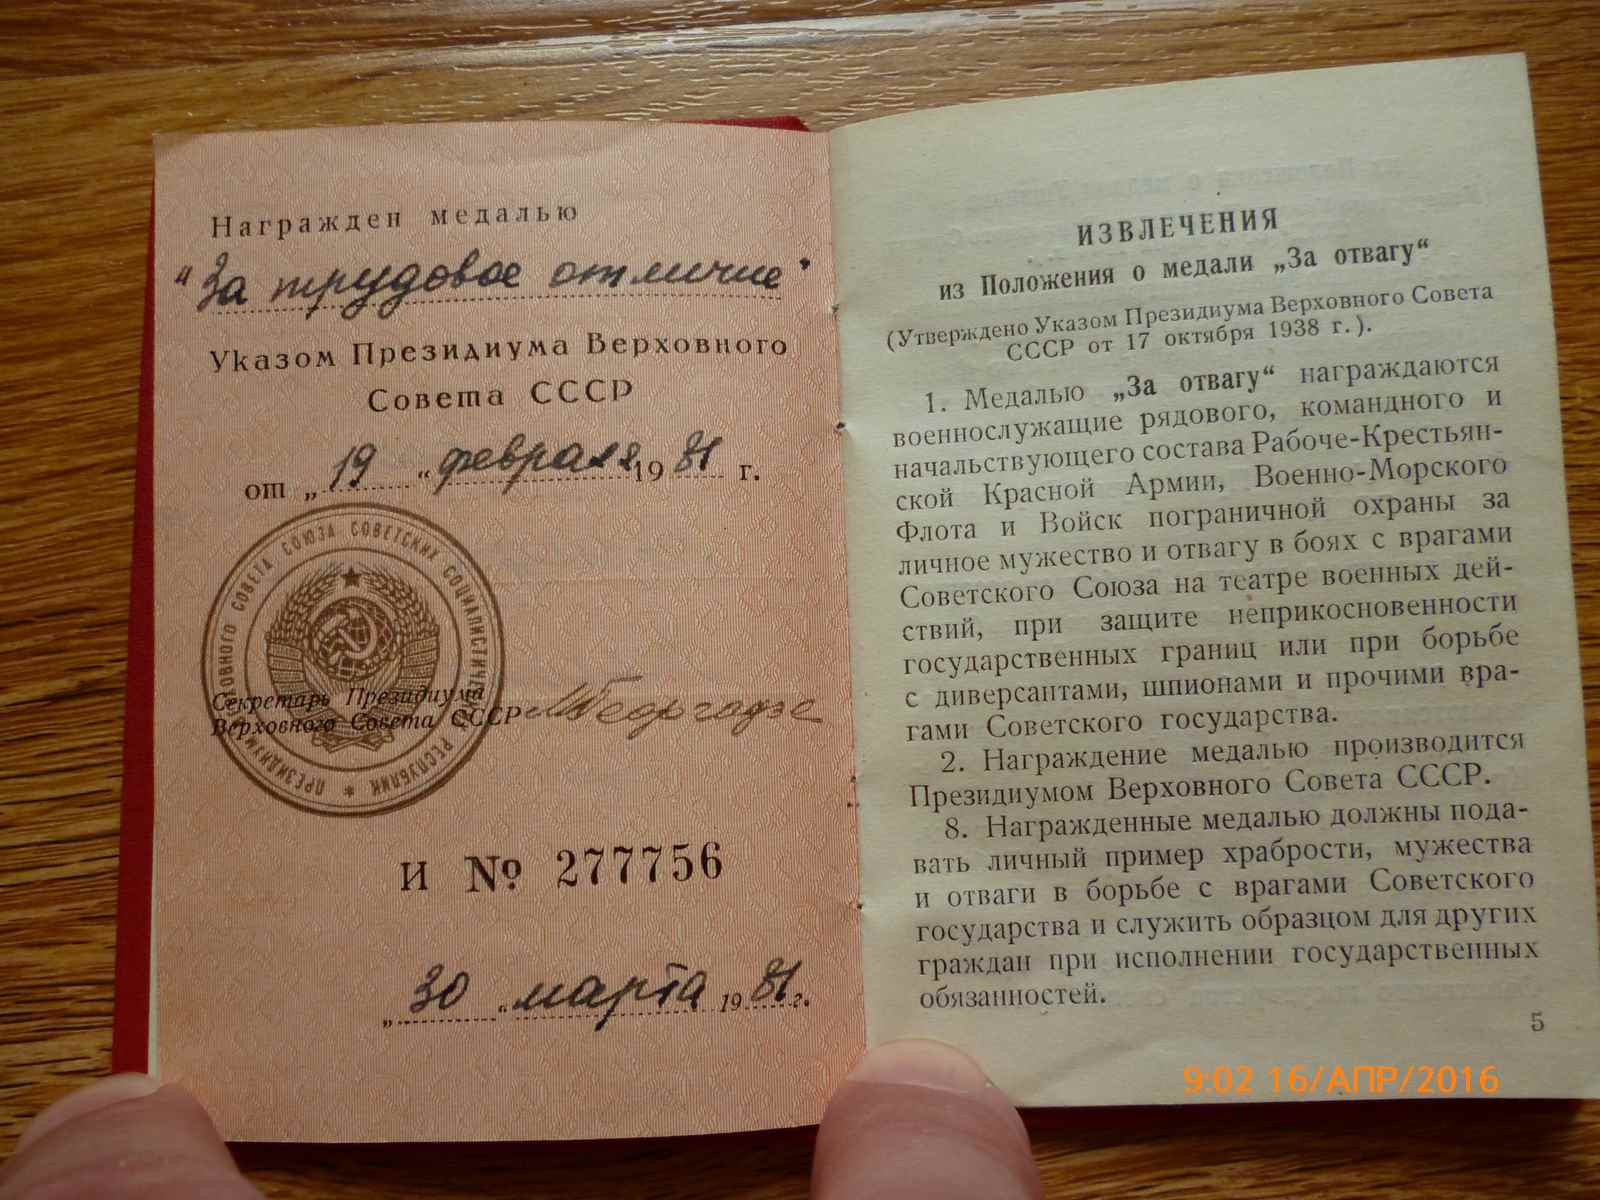 Награжден медалью
"За трудовое отличие"
Указом Президиума Верховного
Совета СССР
от „19“ февраля 1981 г.
ПРЕЗИДИУМ ВЕРХОВНОГО СОВЕТА СОЮЗА СОВЕТСКИХ СОЦИАЛИСТИЧЕСКИХ РЕСПУБЛИК *
Секретарь Президиума
Верховного Совета СССР МГеоргадзе
И № 277756
„30“ марта 1981 г.
ИЗВЛЕЧЕНИЯ
из Положения о медали „За отвагу“
(Утверждено Указом Президиума Верховного Совета
СССР от 17 октября 1938 г.).
1. Медалью „За отвагу“ награждаются
военнослужащие рядового, командного и
начальствующего состава Рабоче-Крестьян-
ской Красной Армии, Военно-Морского
Флота и Войск пограничной охраны за
личное мужество и отвагу в боях с врагами
Советского Союза на театре военных дей-
ствий, при защите неприкосновенности
государственных границ или при борьбе
с диверсантами, шпионами и прочими вра-
гами Советского государства.
2. Награждение медалью производится
Президиумом Верховного Совета СССР.
8. Награжденные медалью должны пода-
вать личный пример храбрости, мужества
и отваги в борьбе с врагами Советского
государства и служить образцом для других
граждан при исполнении государственных
обязанностей.
5
9:02 16/АПР/2016